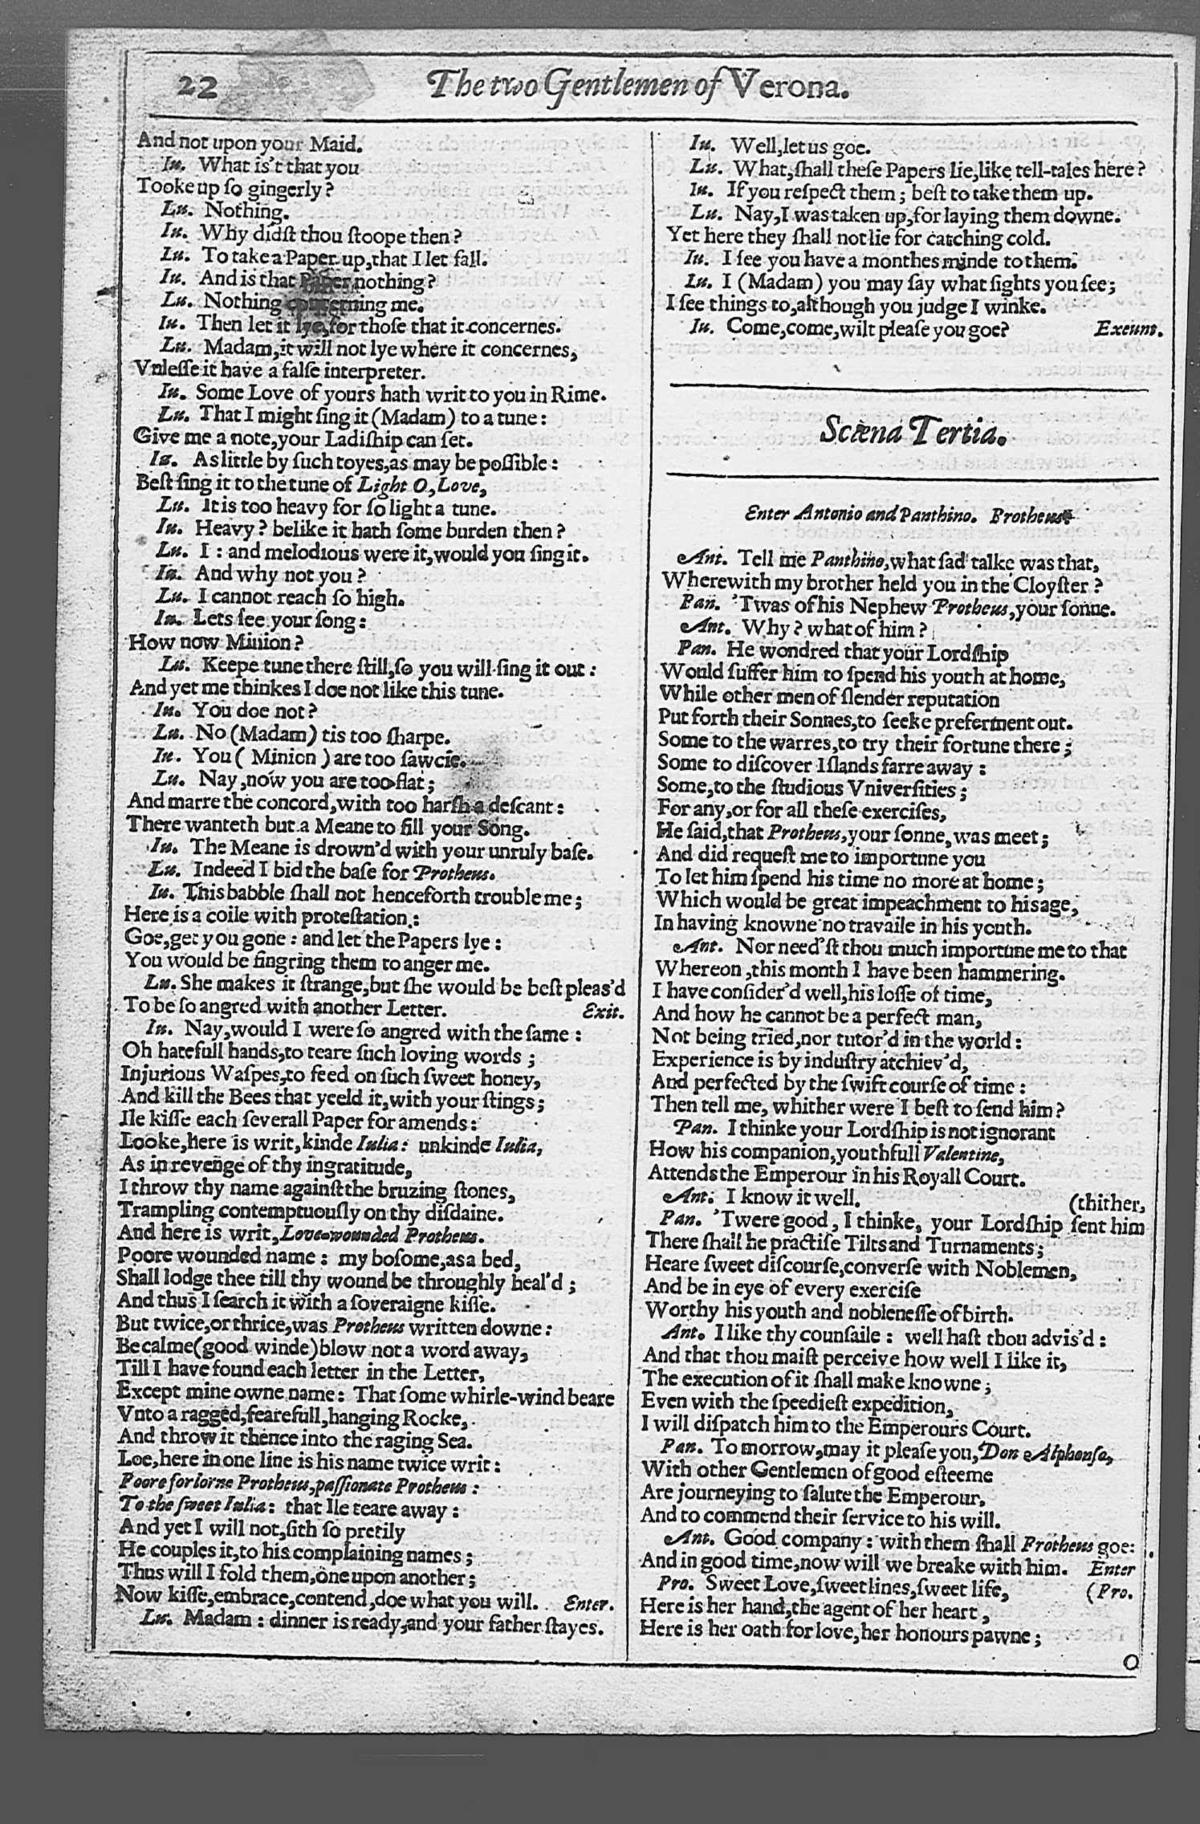 22
The two Gentlemen of Verona.
And not upon your Maid.
Iu. What is't that you
Tooke up so gingerly?
Lu. Nothing.
Iu. Why didſt thou ſtoope then?
Lu. To take a Paper up, that I let fall.
Iu. And is that Paper nothing?
Lu. Nothing concerning me.
Iu. Then let it lye, for thoſe that it concernes.
Lu. Madam, it will not lye where it concernes,
Vnleſſe it have a falſe interpreter.
Iu. Some Love of yours hath writ to you in Rime.
Lu. That I might ſing it (Madam) to a tune:
Give me a note, your Ladiſhip can ſet.
Iu. As little by ſuch toyes, as may be poſſible:
Beſt ſing it to the tune of Light O, Love,
Lu. It is too heavy for ſo light a tune.
Iu. Heavy? belike it hath ſome burden then?
Lu. I: and melodious were it, would you ſing it.
Iu. And why not you?
Lu. I cannot reach ſo high.
Iu. Lets ſee your ſong:
How now Minion?
Lu. Keepe tune there ſtill, ſo you will ſing it out:
And yet me thinkes I doe not like this tune.
Iu. You doe not?
Lu. No (Madam) tis too ſharpe.
Iu. You (Minion) are too ſawcie.
Lu. Nay, now you are too flat;
And marre the concord, with too harſh a deſcant:
There wanteth but a Meane to fill your Song.
Iu. The Meane is drown'd with your unruly baſe.
Lu. Indeed I bid the baſe for Protheus.
Iu. This babble ſhall not henceforth trouble me;
Here is a coile with proteſtation:
Goe, get you gone: and let the Papers lye:
You would be fingring them to anger me.
Lu. She makes it ſtrange, but ſhe would be beſt pleas'd
To be ſo angred with another Letter. Exit.
Iu. Nay, would I were ſo angred with the ſame:
Oh hatefull hands, to teare ſuch loving words;
Injurious Waſpes, to feed on ſuch ſweet honey,
And kill the Bees that yeeld it, with your ſtings;
Ile kiſſe each ſeverall Paper for amends:
Looke, here is writ, kinde Iulia: unkinde Iulia,
As in revenge of thy ingratitude,
I throw thy name againſt the bruzing ſtones,
Trampling contemptuouſly on thy diſdaine.
And here is writ, Love-wounded Protheus.
Poore wounded name: my boſome, as a bed,
Shall lodge thee till thy wound be throughly heal'd;
And thus I ſearch it with a ſoveraigne kiſſe.
But twice, or thrice, was Protheus written downe:
Be calme (good winde) blow not a word away,
Till I have found each letter in the Letter,
Except mine owne name: That ſome whirle-wind beare
Vnto a ragged, fearefull, hanging Rocke,
And throw it thence into the raging Sea.
Loe, here in one line is his name twice writ:
Poore forlorne Protheus, paſſionate Protheus:
To the ſweet Iulia: that Ile teare away:
And yet I will not, ſith ſo pretily
He couples it, to his complaining names;
Thus will I fold them, one upon another;
Now kiſſe, embrace, contend, doe what you will. Enter.
Lu. Madam: dinner is ready, and your father ſtayes.
Iu. Well, let us goe.
Lu. What, ſhall theſe Papers lie, like tell-tales here?
Iu. If you reſpect them; beſt to take them up.
Lu. Nay, I was taken up, for laying them downe.
Yet here they ſhall not lie for catching cold.
Iu. I ſee you have a monthes minde to them.
Lu. I (Madam) you may ſay what ſights you ſee;
I ſee things to, although you judge I winke.
Iu. Come, come, wilt pleaſe you goe? Exeunt.
Scæna Tertia.
Enter Antonio and Panthino. Protheus
Ant. Tell me Panthino, what ſad talke was that,
Wherewith my brother held you in the Cloyſter?
Pan. 'Twas of his Nephew Protheus, your ſonne.
Ant. Why? what of him?
Pan. He wondred that your Lordſhip
Would ſuffer him to ſpend his youth at home,
While other men of ſlender reputation
Put forth their Sonnes, to ſeeke preferment out.
Some to the warres, to try their fortune there;
Some to diſcover Iſlands farre away:
Some, to the ſtudious Vniverſities;
For any, or for all theſe exerciſes,
He ſaid, that Protheus, your ſonne, was meet;
And did requeſt me to importune you
To let him ſpend his time no more at home;
Which would be great impeachment to his age,
In having knowne no travaile in his youth.
Ant. Nor need'ſt thou much importune me to that
Whereon, this month I have been hammering.
I have conſider'd well, his loſſe of time,
And how he cannot be a perfect man,
Not being tried, nor tutor'd in the world:
Experience is by induſtry atchiev'd,
And perfected by the ſwift courſe of time:
Then tell me, whither were I beſt to ſend him?
Pan. I thinke your Lordſhip is not ignorant
How his companion, youthfull Valentine,
Attends the Emperour in his Royall Court.
Ant. I know it well. (thither,
Pan. 'Twere good, I thinke, your Lordſhip ſent him
There ſhall he practiſe Tilts and Turnaments;
Heare ſweet diſcourſe, converſe with Noblemen,
And be in eye of every exerciſe
Worthy his youth and nobleneſſe of birth.
Ant. I like thy counſaile: well haſt thou advis'd:
And that thou maiſt perceive how well I like it,
The execution of it ſhall make knowne;
Even with the ſpeedieſt expedition,
I will diſpatch him to the Emperours Court.
Pan. To morrow, may it pleaſe you, Don Alphonſo,
With other Gentlemen of good eſteeme
Are journeying to ſalute the Emperour,
And to commend their ſervice to his will.
Ant. Good company: with them ſhall Protheus goe:
And in good time, now will we breake with him. Enter
Pro. Sweet Love, ſweet lines, ſweet life, (Pro.
Here is her hand, the agent of her heart,
Here is her oath for love, her honours pawne;
O